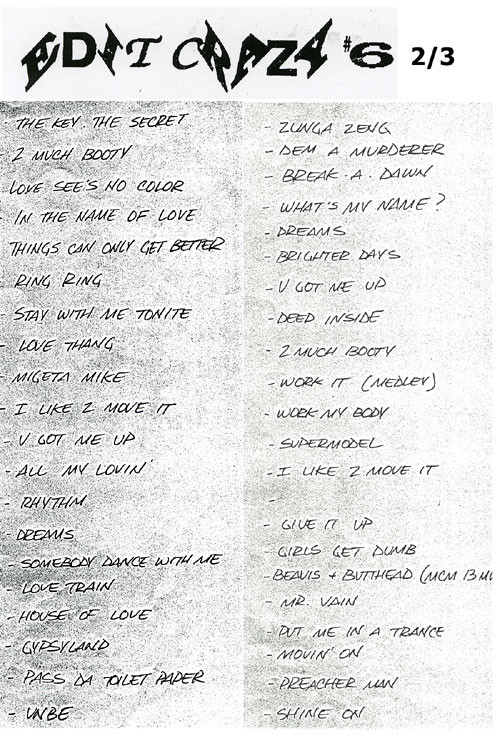 EDIT CRAZE #6 2/3
- THE KEY. THE SECRET
- 2 MUCH BOOTY
LOVE SEE'S NO COLOR
- IN THE NAME OF LOVE
THINGS CAN ONLY GET BETTER
RING RING
- STAY WITH ME TONITE
- LOVE THANG
- MIGETA MIKE
- I LIKE 2 MOVE IT
- U GOT ME UP
- ALL MY LOVIN'
- RHYTHM
- DREAMS
- SOMEBODY DANCE WITH ME
- LOVE TRAIN
- HOUSE OF LOVE
- GYPSYLAND
- PASS DA TOILET PAPER
- UNBE
- ZUNGA ZENG
- DEM A MURDERER
- BREAK . A . DAWN
- WHAT'S MY NAME?
- DREAMS
- BRIGHTER DAYS
- U GOT ME UP
- DEED INSIDE
- 2 MUCH BOOTY
- WORK IT (MEDLEY)
- WORK MY BODY
- SUPERMODEL
- I LIKE 2 MOVE IT
-
- GIVE IT UP
- GIRLS GET DUMB
- BEAVIS + BUTTHEAD (MCM 13
- MR. VAIN
- PUT ME IN A TRANCE
- MOVIN' ON
- PREACHER MAN
- SHINE ON